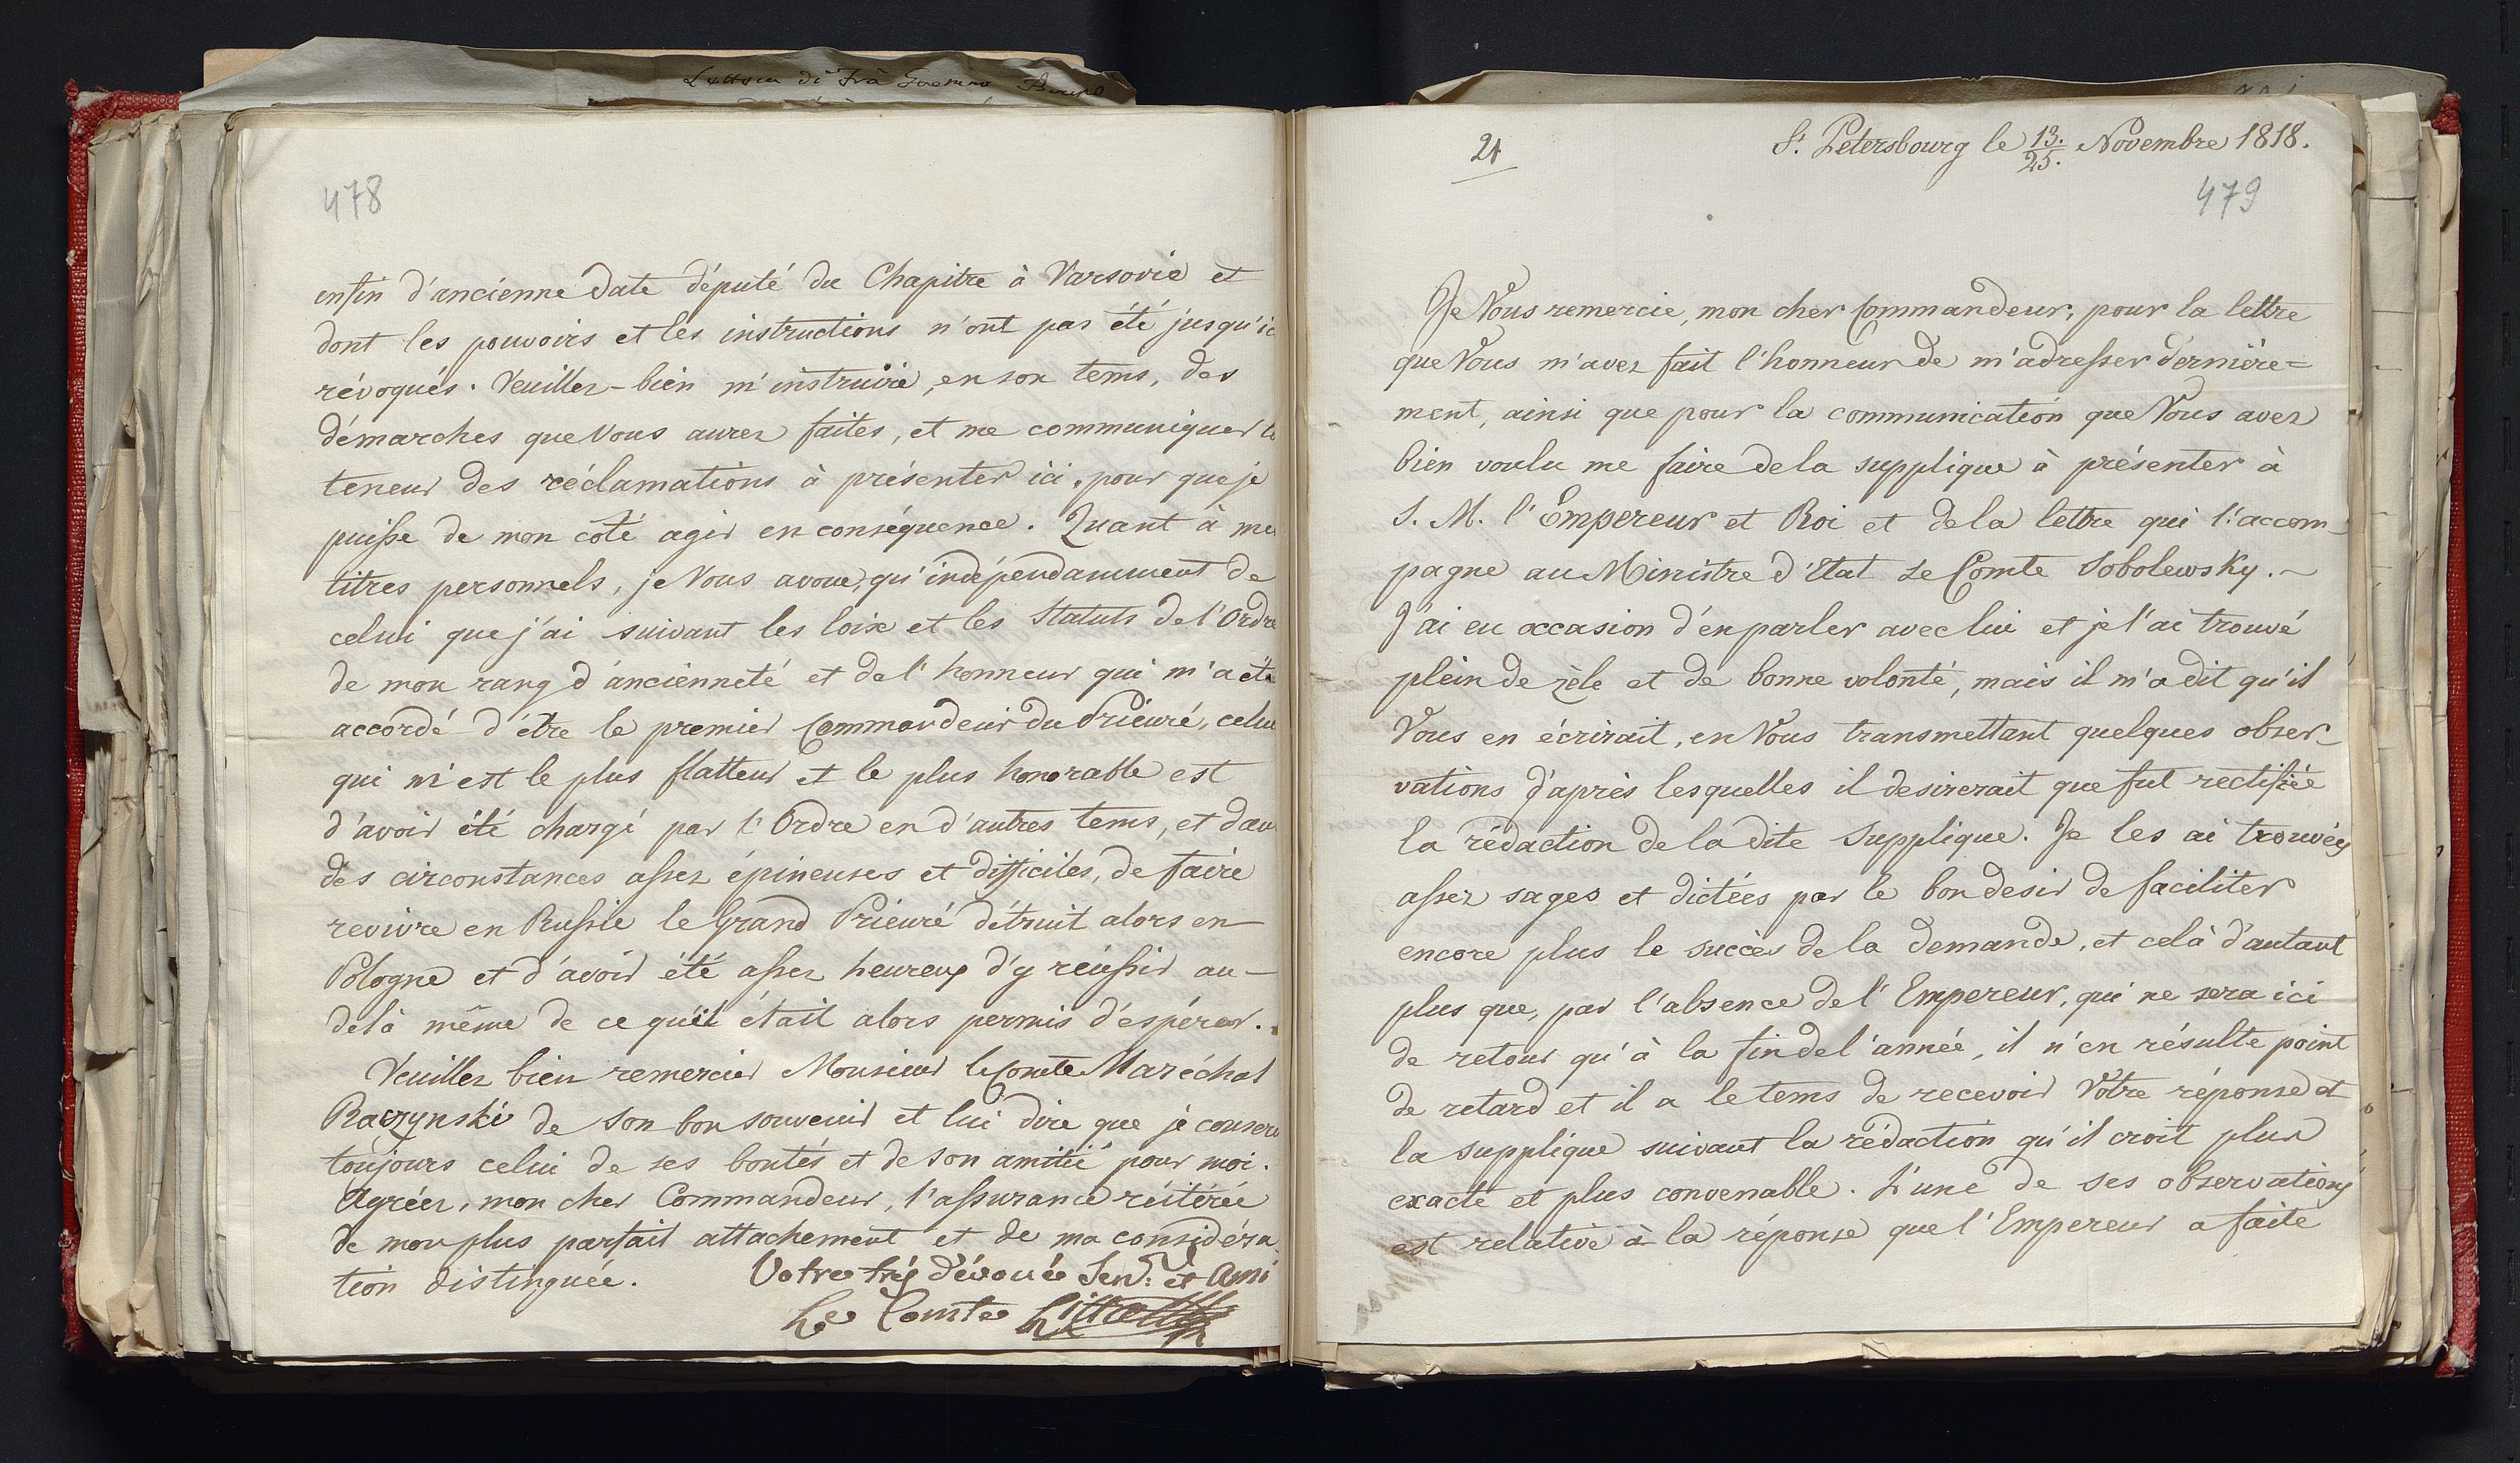 Lettera di Frà
478
enfin d'ancienne date député du Chapitre à Varsovie et
dont les pouvoirs et les instructions n'ont pas été jusqu'ic
révoqués. Veuillez-bien m'instruire, en son tems, des
démarches que Vous aurez faites, et me communiquer
teneur des réclamations à présenter ici, pour que je
puisse de mon côté agir en conséquence. Quant à me
titres personnels, je Vous avoue, qu'indépendamment de
celui que j'ai suivant les loix et les Statuts de l'Ordre
de mon rang d'ancienneté et de l'honneur qui m'a été
accordé d'être le premier Commandeur du Prieuré, celui
qui m'est le plus flatteur et le plus honorable est
d'avoir été chargé par l'Ordre en d'autres tems, et dan
des circonstances assez épineuses et difficiles, de faire
revivre en Russie le Grand Prieuré détruit alors en
Pologne et d'avoir été assez heureux d'y réussir au-
delà même de ce qu'il était alors permis d'espérer.
Veuillez bien remercier Monsieur le Comte Maréchal
Raczynski de son bon souvenir et lui dire que je conserv
toujours celui de ses bontés et de son amitié pour moi.
Agréez, mon cher Commandeur, l'assurance réitérée
de mon plus parfait attachement et de ma considéra
tion distinguée. Votre très dévoué Serv: et Ami
Le Comte Litta
21
St. Petersbourg le 13./25. Novembre 1818.
479
Je Vous remercie, mon cher Commandeur, pour la lettre
que Vous m'avez fait l'honneur de m'adresser dernière=
ment, ainsi que pour la communication que Vous avez
bien voulu me faire de la supplique à présenter à
S. M. l'Empereur et Roi et de la lettre qui l'accom-
pagne au Ministre d'Etat Le Comte Sobolewsky. -
J'ai eu occasion d'en parler avec lui et je l'ai trouvé
plein de zèle et de bonne volonté, mais il m'a dit qu'il
Vous en écrirait, en Vous transmettant quelques obser-
vations d'après lesquelles il desirerait que fut rectifiée
la rédaction de la dite Supplique. Je les ai trouvées
assez sages et dictées par le bon desir de faciliter
encore plus le succès de la demande, et celà d'autant
plus que, par l'absence de l'Empereur, qui ne sera ici
de retour qu'à la fin de l'année, il n'en résulte point
de retard et il a le tems de recevoir Votre réponse et
la supplique suivant la rédaction qu'il croit plus
exacte et plus convenable. L'une de ses observations
est relative à la réponse que l'Empereur a faite